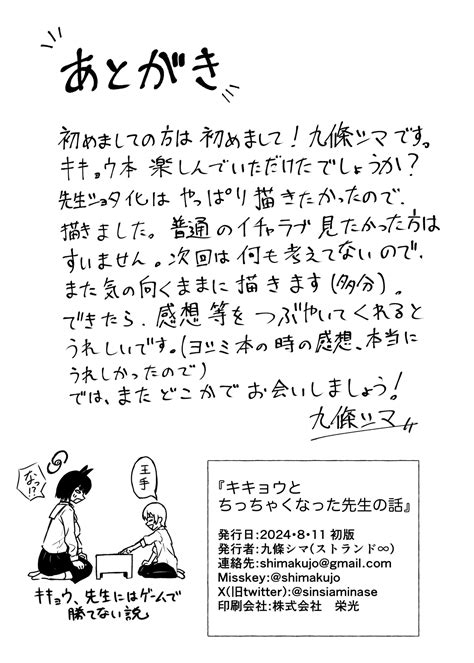 あとがき
初めましての方は初めまして！九條シマです。
キキョウ本 楽しんでいただけたでしょうか？
先生ショタ化は やっぱり描きたかったので、
描きました。普通のイチャラブ 見たかった方は
すいません。次回は何も考えてないので、
また気の向くままに描きます(多分)。
できたら、感想等をつぶやいてくれると
うれしいです。(ヨヅミ本の時の感想、本当に
うれしかったので)
では、またどこかでお会いしましょう！
九條シマ
なっ!?
王手
キキョウ、先生にはゲームで
勝てない説
『キキョウと
ちっちゃくなった先生の話』
発行日:2024・8・11 初版
発行者:九條シマ(ストランド∞)
連絡先:shimakujo@gmail.com
Misskey:@shimakujo
X(旧twitter):@sinsiaminase
印刷会社:株式会社　栄光